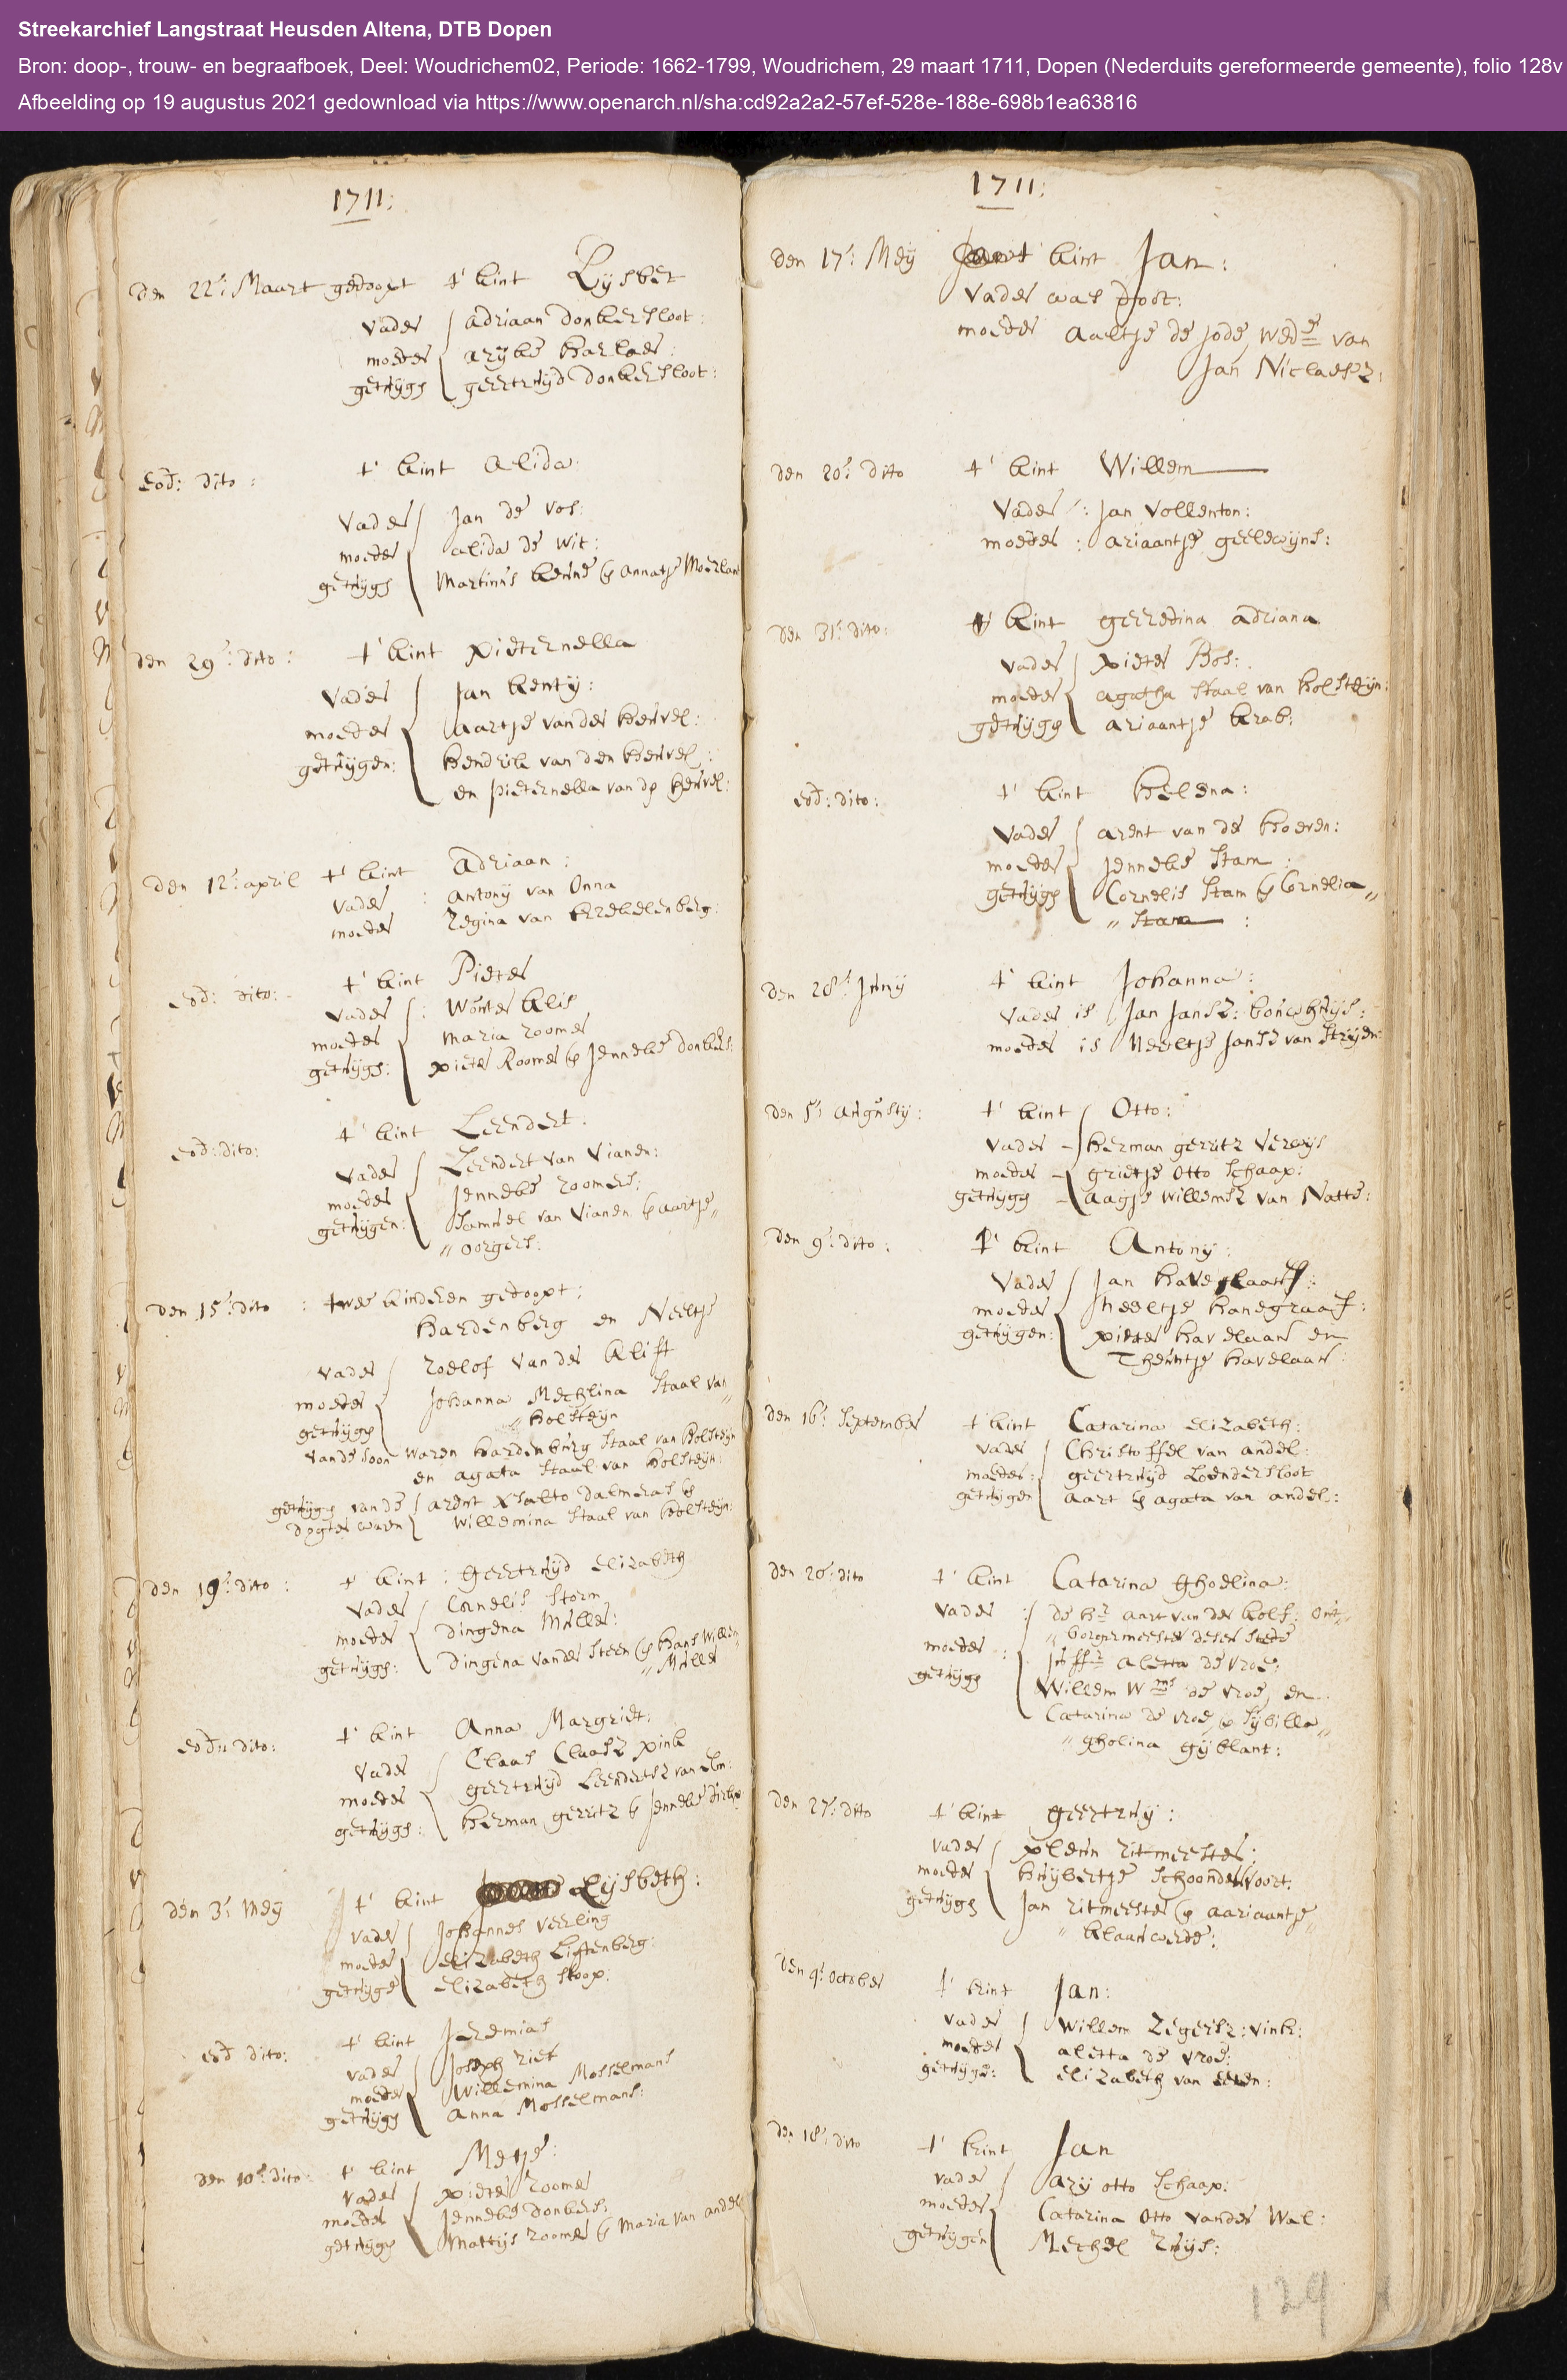 Streekarchief Langstraat Heusden Altena, DTB Dopen
Bron: doop-, trouw- en begraafboek, Deel: Woudrichem02, Periode: 1662-1799, Woudrichem, 29 maart 1711, Dopen (Nederduits gereformeerde gemeente), folio 128v
Afbeelding op 19 augustus 2021 gedownload via https://www.openarch.nl/sha:cd92a2a2-57ef-528e-188e-698b1ea63816
1711:
den 22: Maart gedoopt t' kint Lijsbet
vader adriaan donkersloot:
moeder
getuijgs geertruijd donkersloot:
Eod: dito: t' kint Alida
vader Jan de vos:
moeder alida de wit:
getuijgs Martinus
den 29: dito: t' kint pieternella
vader Jan
moeder Aartje vander heuvel:
getuijgen: hendrik van den heuvel:
en pieternella van d heuvel:
den 12: april t' kint Adriaan:
vader: Antonij van Onna
moeder Regina van
Eod: dito: t' kint Pieter
vader: Wouter klis
moeder maria roomer
getuijgs: pieter Roomer & Jenneke donkers:
eod: dito: t' kint Leendert:
vader Leendert van Vianen:
moeder Jenneke roomers:
getuijgen: Samuel van Vianen & aartje
oorgers:
den 15: dito: twee kinderen gedoopt:
hardenberg en Neeltje
vader roelof van der klift
moeder Johanna Mechlina Staal van
getuijgs holsteijn
van de soon waren hardenburg Staal van holsteijn
en agata Staal van holsteijn:
getuijgs van de arent psalto dalmeras &
dogter waren willemina Staal van holsteijn:
den 19: dito: t' kint: geertruijd elizabeth
vader Cornelis Storm
moeder dingena Muller:
getuijgs: dingena vander Steen & hans willem
Muller
eod: dito: t' kint Anna Margriet:
vader Claas Claasz pink
moeder geertruijd Leendertsz van
getuijgs: herman gerritz & Jenneke
den 3: Meij t' kint Lijsbeth:
vader Johannes veerling
moeder elizabeth Liftenberg:
getuijge elizabeth stoop:
eod dito: t' kint Jeremias
vader Joseph riet
moeder willemina Mosselmans
getuijgs anna Mosselmans:
den 10: dito: t' kint Metje:
vader pieter roomer
moeder Jenneke donkers:
getuijgs Mattijs roomer & maria van andel
1711:
den 17: Meij kint Jan:
vader was doot:
moeder aaltje de jode, wede van
Jan Niclaesz:
den 20: dito t' kint Willem
vader: Jan Vollenton:
moeder: ariaantje geelewijns:
den 31: dito: t' kint gerredina adriana
vader pieter Bos:
moeder agatha Staal van holsteijn:
getuijgs ariaantje krab:
eod: dito: t' kint helena:
vader arent van der hoeven:
moeder Jenneke Stam:
getuijgs Cornelis Stam & Cornelia
Stam:
den 28: Junij t' kint Johanna:
vader is Jan Jansz: bouwhuijs:
moeder is Neeltje Jansd van Strijen:
den 5: augustij: t' kint Otto:
vader herman gerritz verwijs
moeder grietje Otto Schaap:
getuijgs aagje willemsz van Natte:
den 9: dito: t' kint Antonij:
vader Jan havelaar:
moeder Neeltje hanegraaf:
getuijgen: pieter havelaar en
Theuntje havelaar:
den 16: September t' kint Catarina elizabeth:
vader Christoffel van andel:
moeder: geertruijd
getuijgen aart & agata van andel:
den 20: dito t' kint Catarina Ghoelina:
vader: de hr aart van der kolf: Out
borgermeester deser Stede
moeder: Juffr aletta de vroe:
getuijgs Willem Wms de vroe, en
Catarina de vroe, & Sijbilla
gholina gijblant:
den 27: dito t' kint geertruij:
vader pleun ritmeester:
moeder huijbertje Schoondervoort:
getuijgs Jan ritmeester & aariaantje
klaarwerde:
den 4: october t' kint Jan:
vader Willem Zegersz: vink:
moeder aletta de vroe:
getuijge: elizabeth van
den 18: dito t' kint Jan
vader arij otto Schaap:
moeder Catarina Otto vander Wal:
getuijgen Mechel ruijs:
129